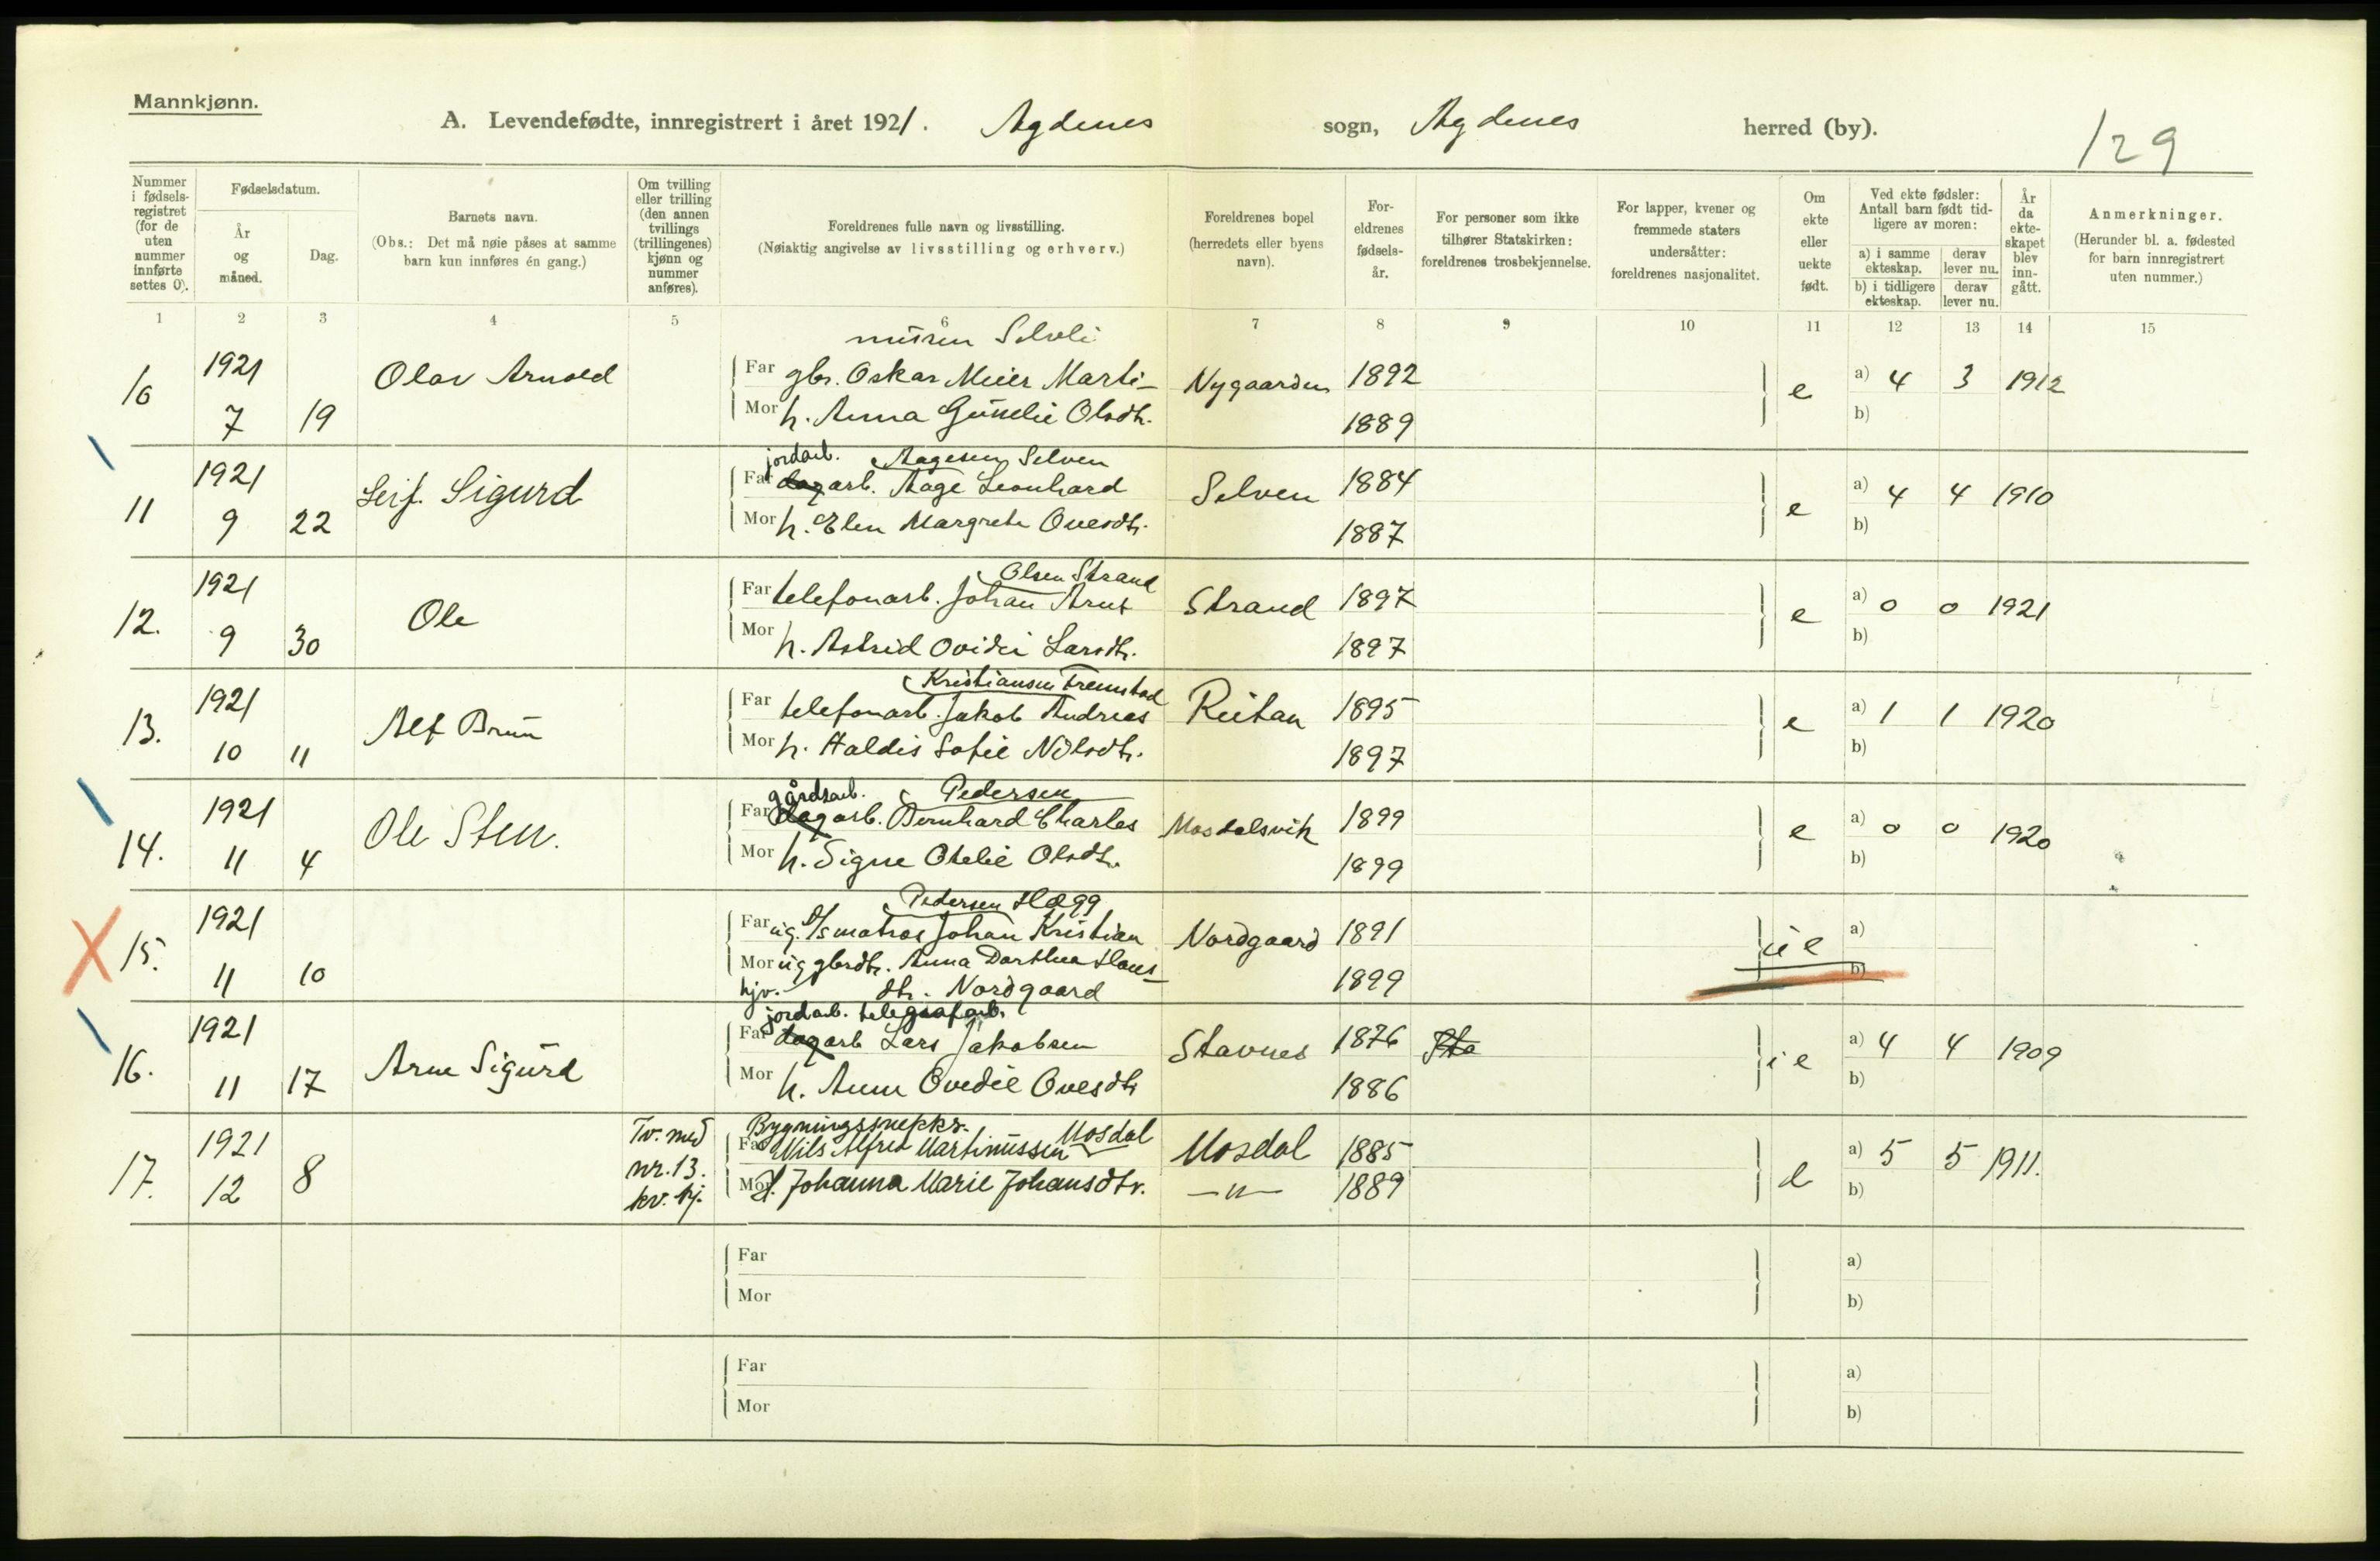 Mannkjønn.
A. Levendefødte, innregistrert i året 1921. Agdenes sogn, Agdenes herred (by).
129
Nummer i fødselsregistret (for de uten nummer innførte settes 0).
Fødselsdatum.
År og måned.
Dag.
Barnets navn.
(Obs.: Det må nøie påses at samme barn kun innføres én gang.)
Om tvilling eller trilling (den annen tvillings (trillingenes) kjønn og nummer anføres).
Foreldrenes fulle navn og livsstilling.
(Nøiaktig angivelse av livsstilling og erhverv.)
Foreldrenes bopel (herredets eller byens navn).
Foreldrenes fødselsår.
For personer som ikke tilhører Statskirken: foreldrenes trosbekjennelse.
For lapper, kvener og fremmede staters undersåtter: foreldrenes nasjonalitet.
Om ekte eller uekte født.
Ved ekte fødsler: Antall barn født tidligere av moren:
a) i samme ekteskap. derav lever nu.
b) i tidligere ekteskap. derav lever nu.
År da ekteskapet blev inngått.
Anmerkninger.
(Herunder bl. a. fødested for barn innregistrert uten nummer.)
1 2 3 4 5 6 7 8 9 10 11 12 13 14 15
nussen Selvli
10 1921 Olav Arnold Far gbr. Oskar Meier Marti- Nygaarden 1892 e a) 4 3 1912
7 19 Mor h. Anna Gunelie Olsdtr. 1889 b)
jordarb. Aagesen Selven
11 1921 Leif Sigurd Far dagarb. Aage Leonhard Selven 1884 e a) 4 4 1910
9 22 Mor h. Elen Margrete Ovesdtr. 1887 b)
Olsen Strand
12. 1921 Ole Far telefonarb. Johan Arnt Strand 1897 e a) 0 0 1921
9 30 Mor h. Astrid Ovidei Larsdtr. 1897 b)
Kristiansen Fremstad
13. 1921 Alf Brun Far telefonarb. Jakob Andreas Reitan 1895 e a) 1 1 1920
10 11 Mor h. Haldis Sofie Nilsdtr. 1897 b)
gårdsarb. Pedersen
14. 1921 Ole Sten. Far dagarb. Bernhard Charles Mosdalsvik 1899 e a) 0 0 1920
11 4 Mor h. Signe Otelie Olsdtr. 1899 b)
Pedersen Hægg
15. 1921 Far ug. D/S matros Johan Kristian Nordgaard 1891 ue a)
11 10 Mor ug gbrdtr. Anna Dorthea Hans- 1899 b)
hjv. dtr. Nordgaard
jordarb. telegrafarb.
16. 1921 Arne Sigurd Far dagarb Lars Jakobsen Stavnes 1876 e a) 4 4 1909
11 17 Mor h. Anne Ovedie Ovesdtr 1886 b)
Tv. med Bygningssnekkr. Mosdal
17. 1921 nr. 13. Far Nils Alfred Martinussen Mosdal 1885 e a) 5 5 1911.
12 8 kv. kj. Mor H. Johanna Marie Johansdtr. —"— 1889 b)
Far a)
Mor b)
Far a)
Mor b)